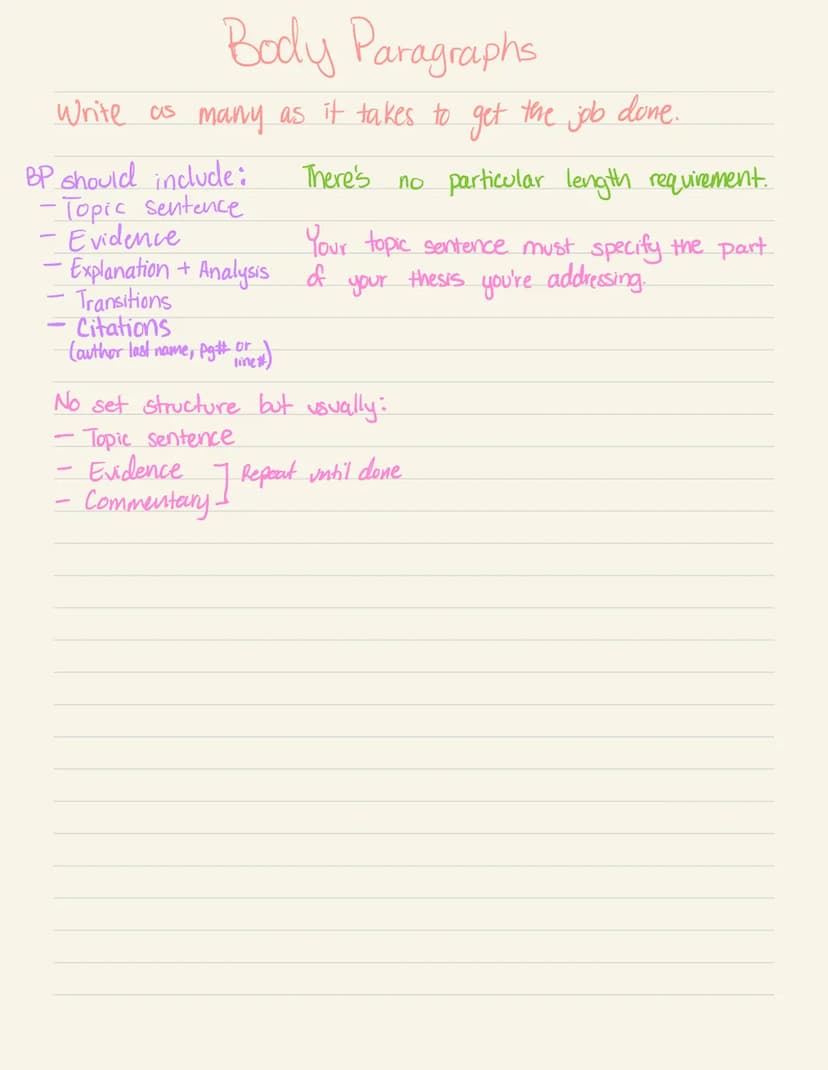 Body Paragraphs
Write as many as it takes to get the job done.
BP should include:
- Topic sentence
- Evidence
- Explanation + Analysis
- Transitions
- Citations
(author last name, pg# or line#)
There's no particular length requirement.
Your topic sentence must specify the part
of your thesis you're addressing.
No set structure but usually:
- Topic sentence
- Evidence
- Commentary
] Repeat until done